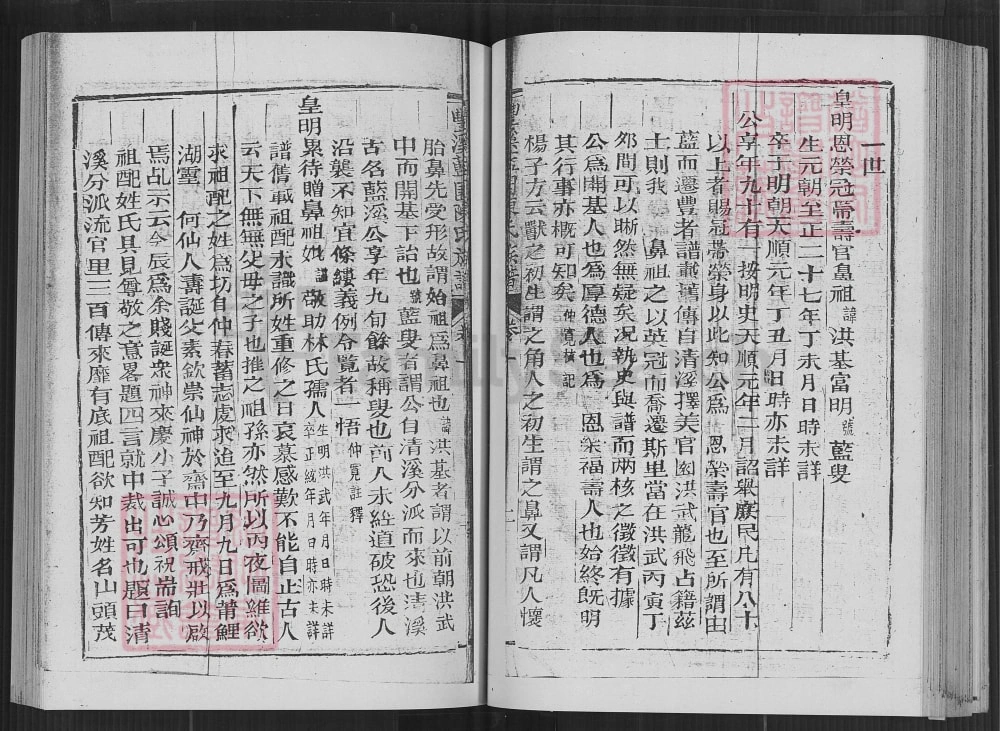 一世
皇明恩榮冠帶壽官皇祖諱洪基富明號藍叟
生元朝至正二十七年丁未月日時未詳
卒于明朝天順元年丁丑月日時亦未詳
公享年九十有一按明史天順元年二月詔舉庶民凡有八十
以上者賜冠帶榮身以此知公爲恩榮壽官也至所謂由
藍而遷豐者譜載舊傳自清溪擇美官園洪武龍飛占籍茲
土則我鼻祖之以英冠而喬遷斯里當在洪武丙寅丁
夘間可以晰然無疑矣况執史與譜而兩核之徵徵有據
公爲開基人也爲厚德人也爲恩榮福壽人也始終旣明
其行事亦概可知矣仲寬積記
楊子方云獸之初生謂之角人之初生謂之鼻又謂凡人懷
豐溪藍園陳氏族譜 卷一
胎鼻先受形故謂始祖爲鼻祖也諱洪基者謂以前朝洪武
中而開基下詒也號藍叟者謂公自清溪分派而來也清溪
古名藍溪公享年九旬餘故稱叟也前人未經道破恐後人
沿襲不知宜條縷義例令覽者一悟仲寬註釋
皇明累待贈鼻祖妣諡敬助林氏孺人生明洪武年月日時未詳卒正統年月日時亦未詳
譜舊載祖配未識所姓重修之日哀慕感歎不能自止古人
云天下無無父母之子也推之祖孫亦然所以丙夜圖維欲
求祖配之姓爲切自仲春蓄志處求迨至九月九日爲莆鯉
湖靈何仙人壽誕父素欽崇仙神於齋中乃齋戒壯以啟
焉乩示云今辰爲余賤誕衆神來慶小子誠心頌祝耑詢
祖配姓氏具見尊敬之意畧題四言就中裁出可也題曰清
溪分派流官里三百傳來靡有底祖配欲知芳姓名山頭茂